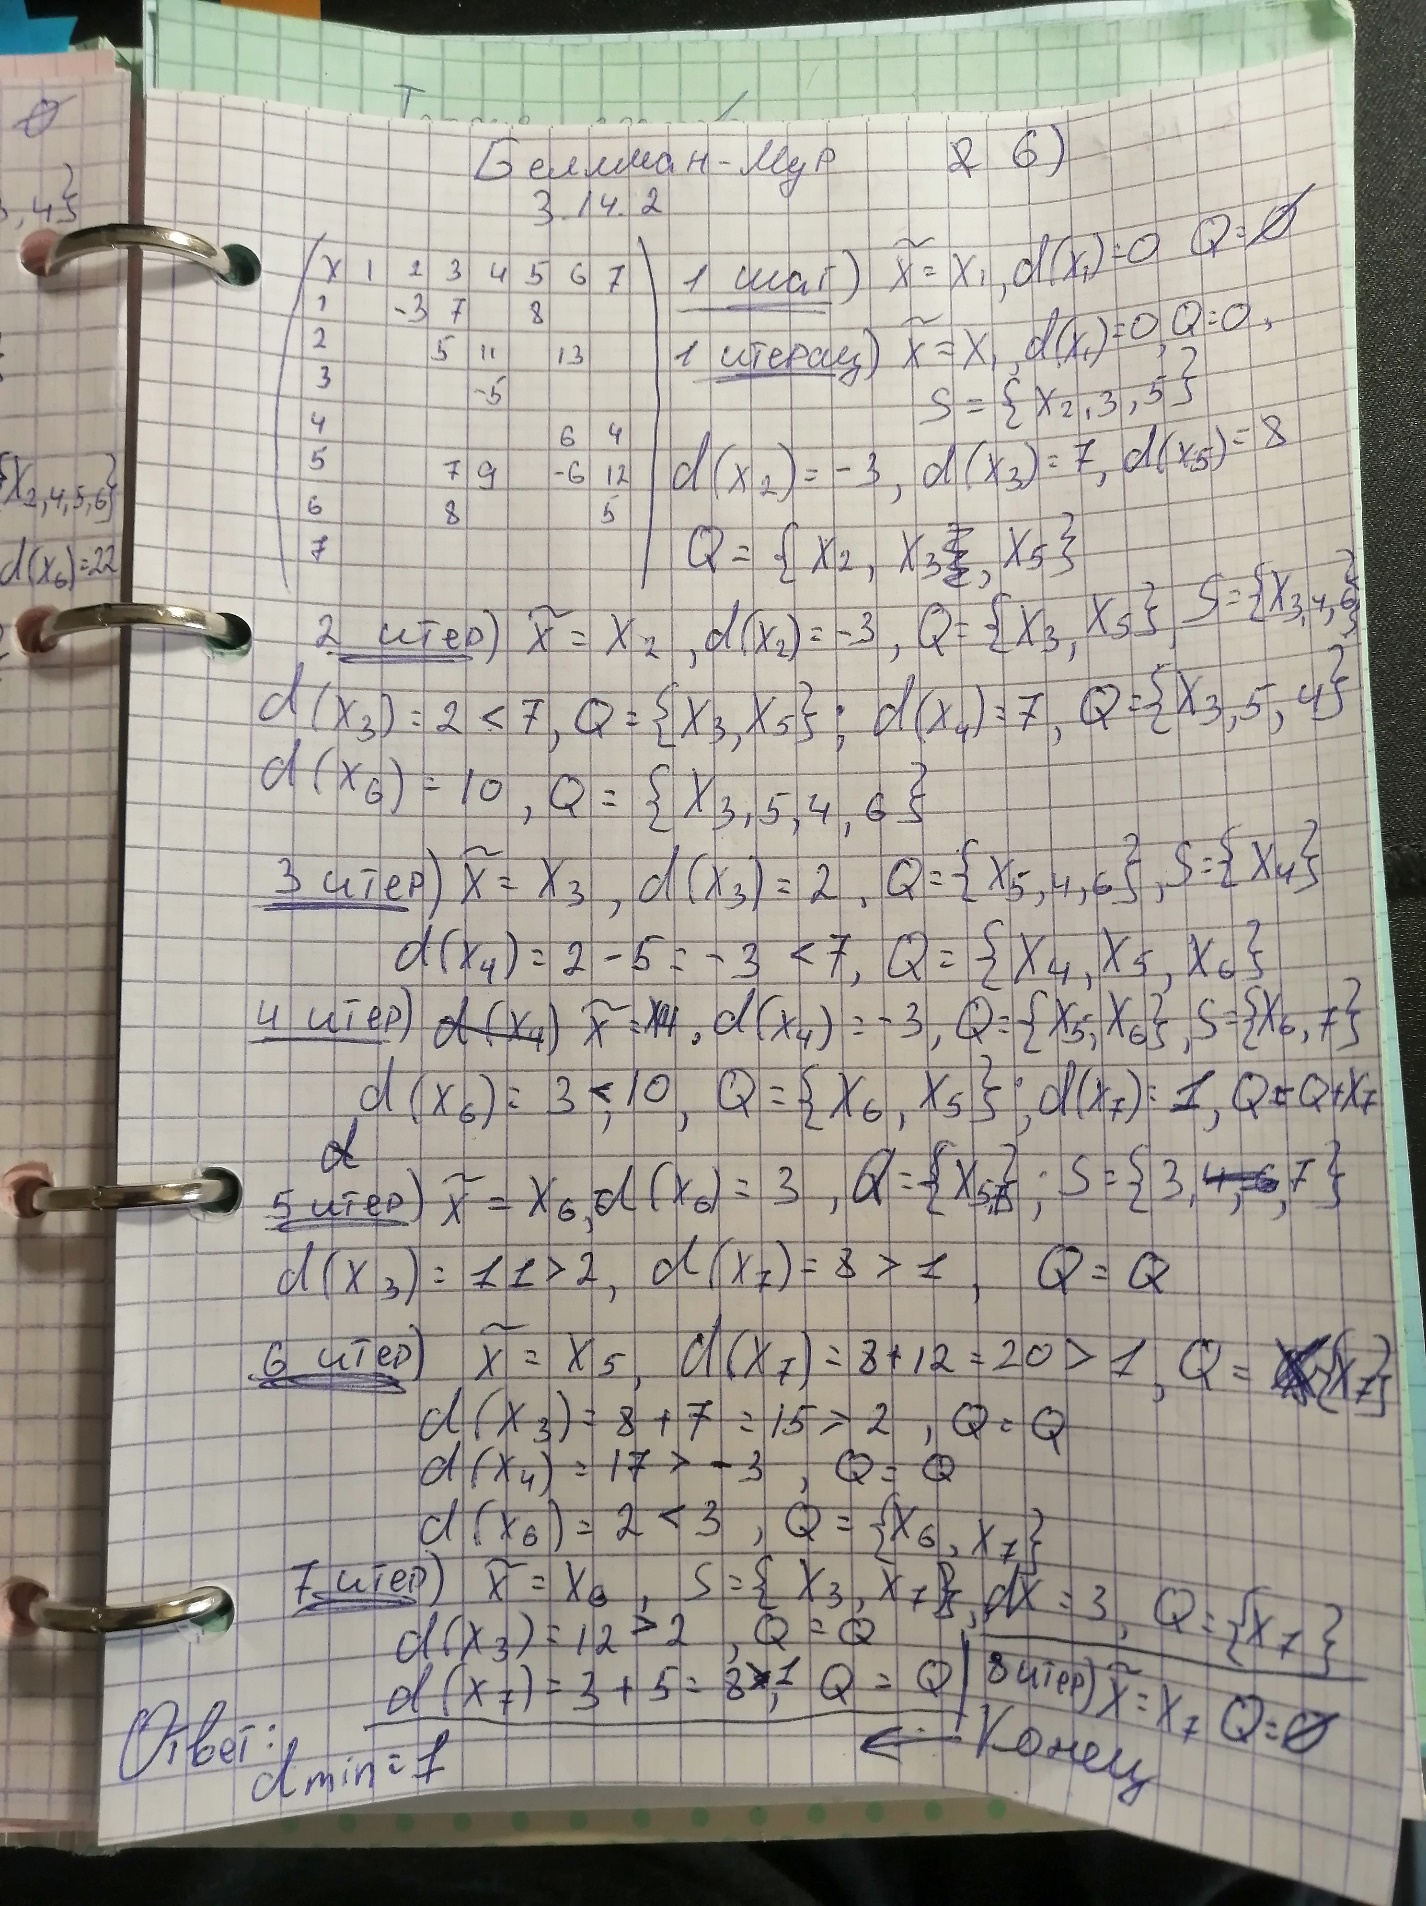 Беллман-Мур 2 б)
3.14.2
X 1 2 3 4 5 6 7
1 -3 7 8
2 5 11 13
3 -5
4 6 4
5 7 9 -6 12
6 8 5
7
1 шаг) x̃ = x₁, d(x₁)=0 Q=∅
1 итерац) x̃ = x₁, d(x₁)=0, Q=0,
S = {x₂,₃,₅}
d(x₂) = -3, d(x₃) = 7, d(x₅) = 8
Q = {x₂, x₃, x₅}
2 итер) x̃ = x₂, d(x₂) = -3, Q={x₃, x₅} S={x₃,₄,₆}
d(x₃) = 2 < 7, Q={x₃, x₅}; d(x₄)=7, Q={x₃,₅,₄}
d(x₆) = 10, Q = {x₃,₅,₄,₆}
3 итер) x̃ = x₃, d(x₃) = 2, Q={x₅,₄,₆}, S={x₄}
d(x₄) = 2-5 = -3 < 7, Q = {x₄, x₅, x₆}
4 итер) d(x₄) x̃ = x₄, d(x₄) = -3, Q={x₅, x₆}, S={x₆,₇}
d(x₆) = 3 < 10, Q = {x₆, x₅}; d(x₇) = 1, Q=Q+x₇
d
5 итер) x̃ = x₆, d(x₆) = 3, Q={x₅,₇}; S={3, 4, 6, 7}
d(x₃) = 11 > 2, d(x₇) = 8 > 1, Q = Q
6 итер) x̃ = x₅, d(x₇) = 8+12 = 20 > 1, Q = {x₇}
d(x₃) = 8+7 = 15 > 2, Q = Q
d(x₄) = 17 > -3, Q = Q
d(x₆) = 2 < 3, Q = {x₆, x₇}
7 итер) x̃ = x₆, S={x₃, x₇}, dx = 3, Q={x₇}
d(x₃) = 12 > 2, Q = Q
d(x₇) = 3+5 = 8 > 1, Q = Q
8 итер) x̃ = x₇ Q=∅
← Конец
Ответ:
d min = 1
∅
, 4}
{x₂,₄,₅,₆}
d(x₆)=22